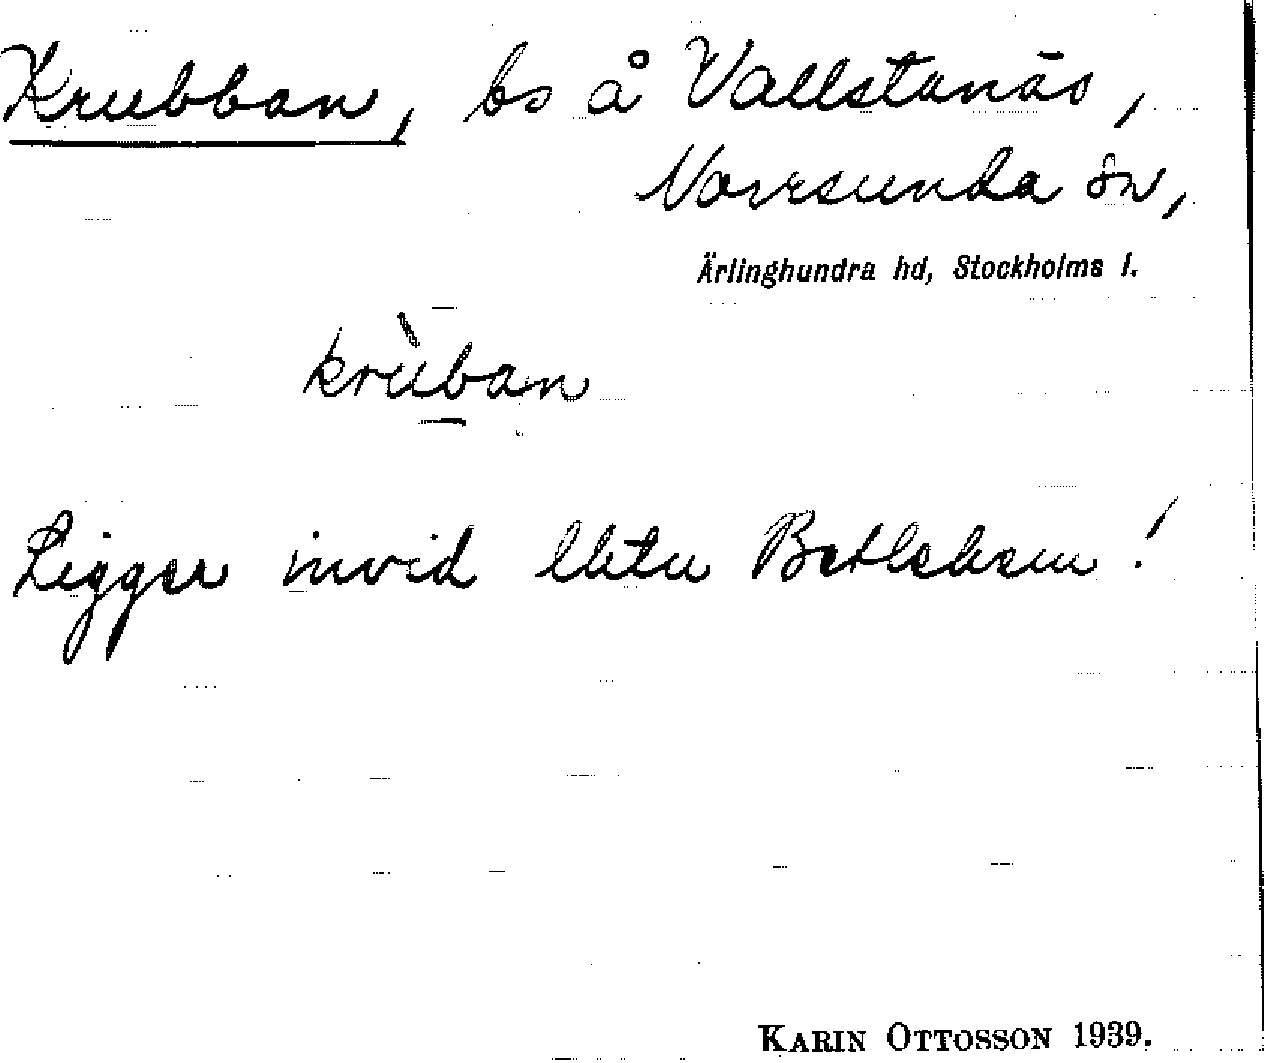 Krubban, bs å Vallstanäs,
Norrsunda sn,
Ärlinghundra hd, Stockholms l.
krùban
Ligger invid lhtn Betlehem!
KARIN OTTOSSON 1939.